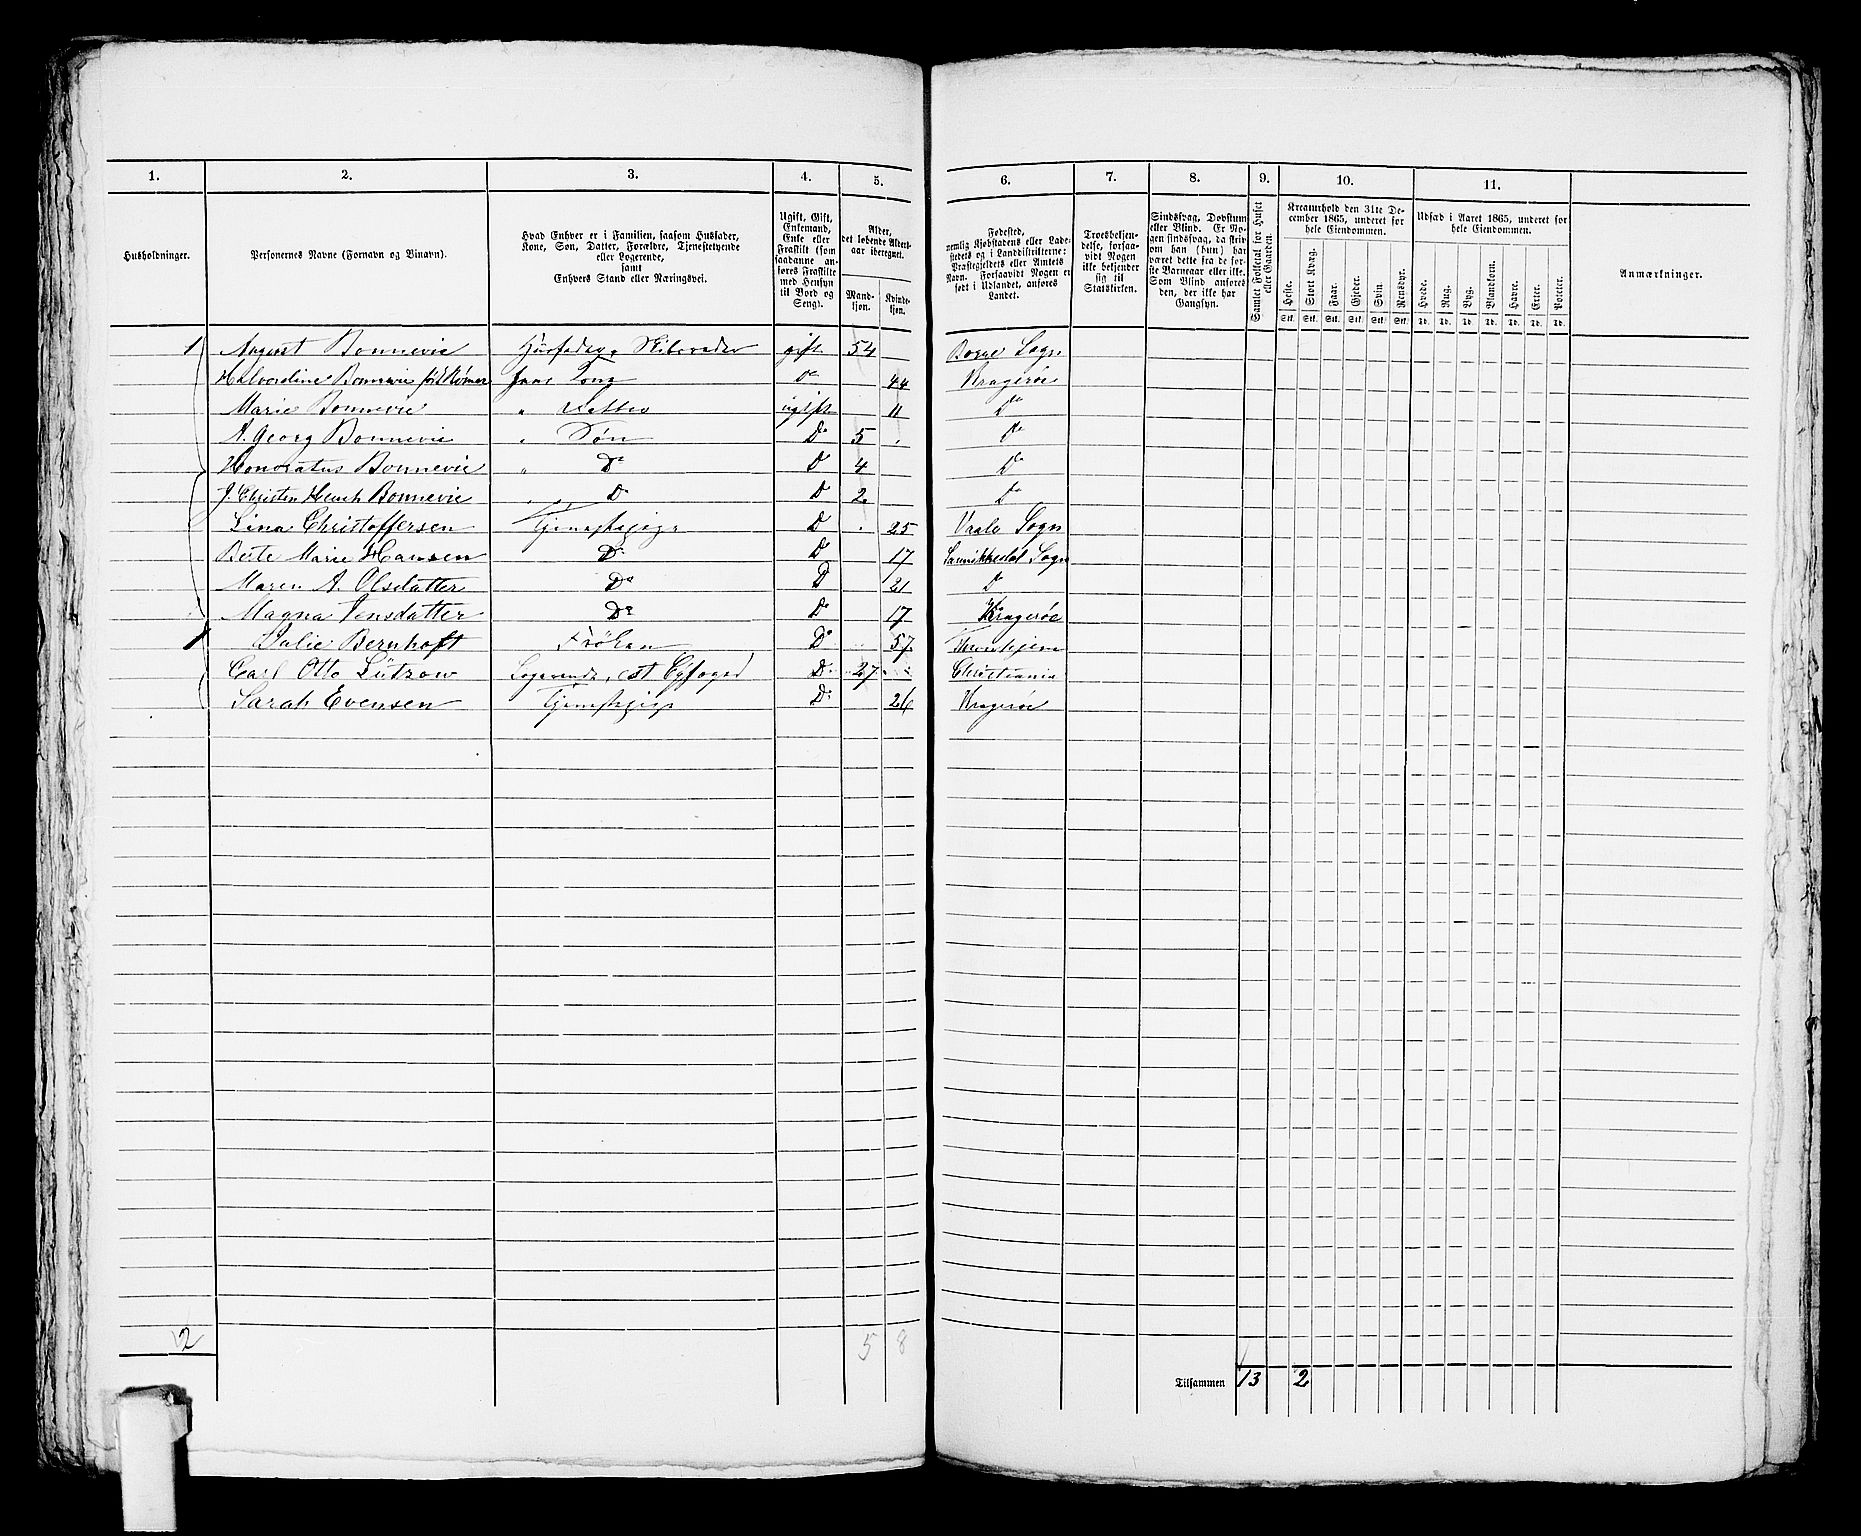 1. 2. 3. 4. 5. 6. 7. 8. 9. 10. 11.
Husholdninger.
Personernes Navne (Fornavn og Binavn).
Hvad Enhver er i Familien, saasom Husfader, Kone, Søn, Datter, Forældre, Tjenestetyende eller Logerende, samt Enhvers Stand eller Næringsvei.
Ugift, Gift, Enkemand, Enke eller Fraskilt (som saadanne anføres Fraskilte med Hensyn til Bord og Seng).
Alder, det løbende Aldersaar iberegnet.
Mandkjøn. Kvindekjøn.
Fødested, nemlig Kjøbstadens eller Ladestedets og i Landdistrikterne: Præstegjeldets eller Amtets Navn. Forsaavidt Nogen er født i Udlandet, anføres Landet.
Troesbekjendelse, forsaavidt Nogen ikke bekjender sig til Statskirken.
Sindssvag, Døvstum eller Blind. Er Nogen sindssvag, da skrives om han (hun) har været dette fra de første Barneaar eller ikke. Som Blind anføres den, der ikke har Gangsyn.
Samlet Folketal for Huset eller Gaarden.
Kreaturhold den 31te December 1865, underet for hele Eiendommen.
Heste. Stort Kvæg. Faar. Gjeder. Svin. Rensdyr.
Stk. Stk. Stk. Stk. Stk. Stk.
Udsæd i Aaret 1865, underet for hele Eiendommen.
Hvede. Rug. Byg. Blandkorn. Havre. Erter. Poteter.
Td. Td. Td. Td. Td. Td. Td.
Anmærkninger.
1 August Bonnevie Huusfader, gift 54 Sogn
Halvordine Bonnevie Kone Do 44 Kragerøe
Marie Bonnevie " Datter ugift 11 Do
A. Georg Bonnevie " Søn Do 5 Do
Honoratus Bonnevie " Do D 4 Do
J. Christen Bonnevie " Do D 2 Do
Lina Christoffersen Tjenestepige D 25 Vaale Sogn
Berte Marie Hansen Do Do 17 Sannikedal Sogn
Maren A. Olsdatter Do D 21 Do
Magna Jensdatter Do Do 17 Kragerøe
1 Julie Bernhoft Frøken Do 57 Thronhjem
Carl Otto Lützow Logerende, cst Byfoged Do 27 Christiania
Sarah Evensen Tjenestepige Do 26 Kragerøe
2 5 8
Tilsammen 13 2